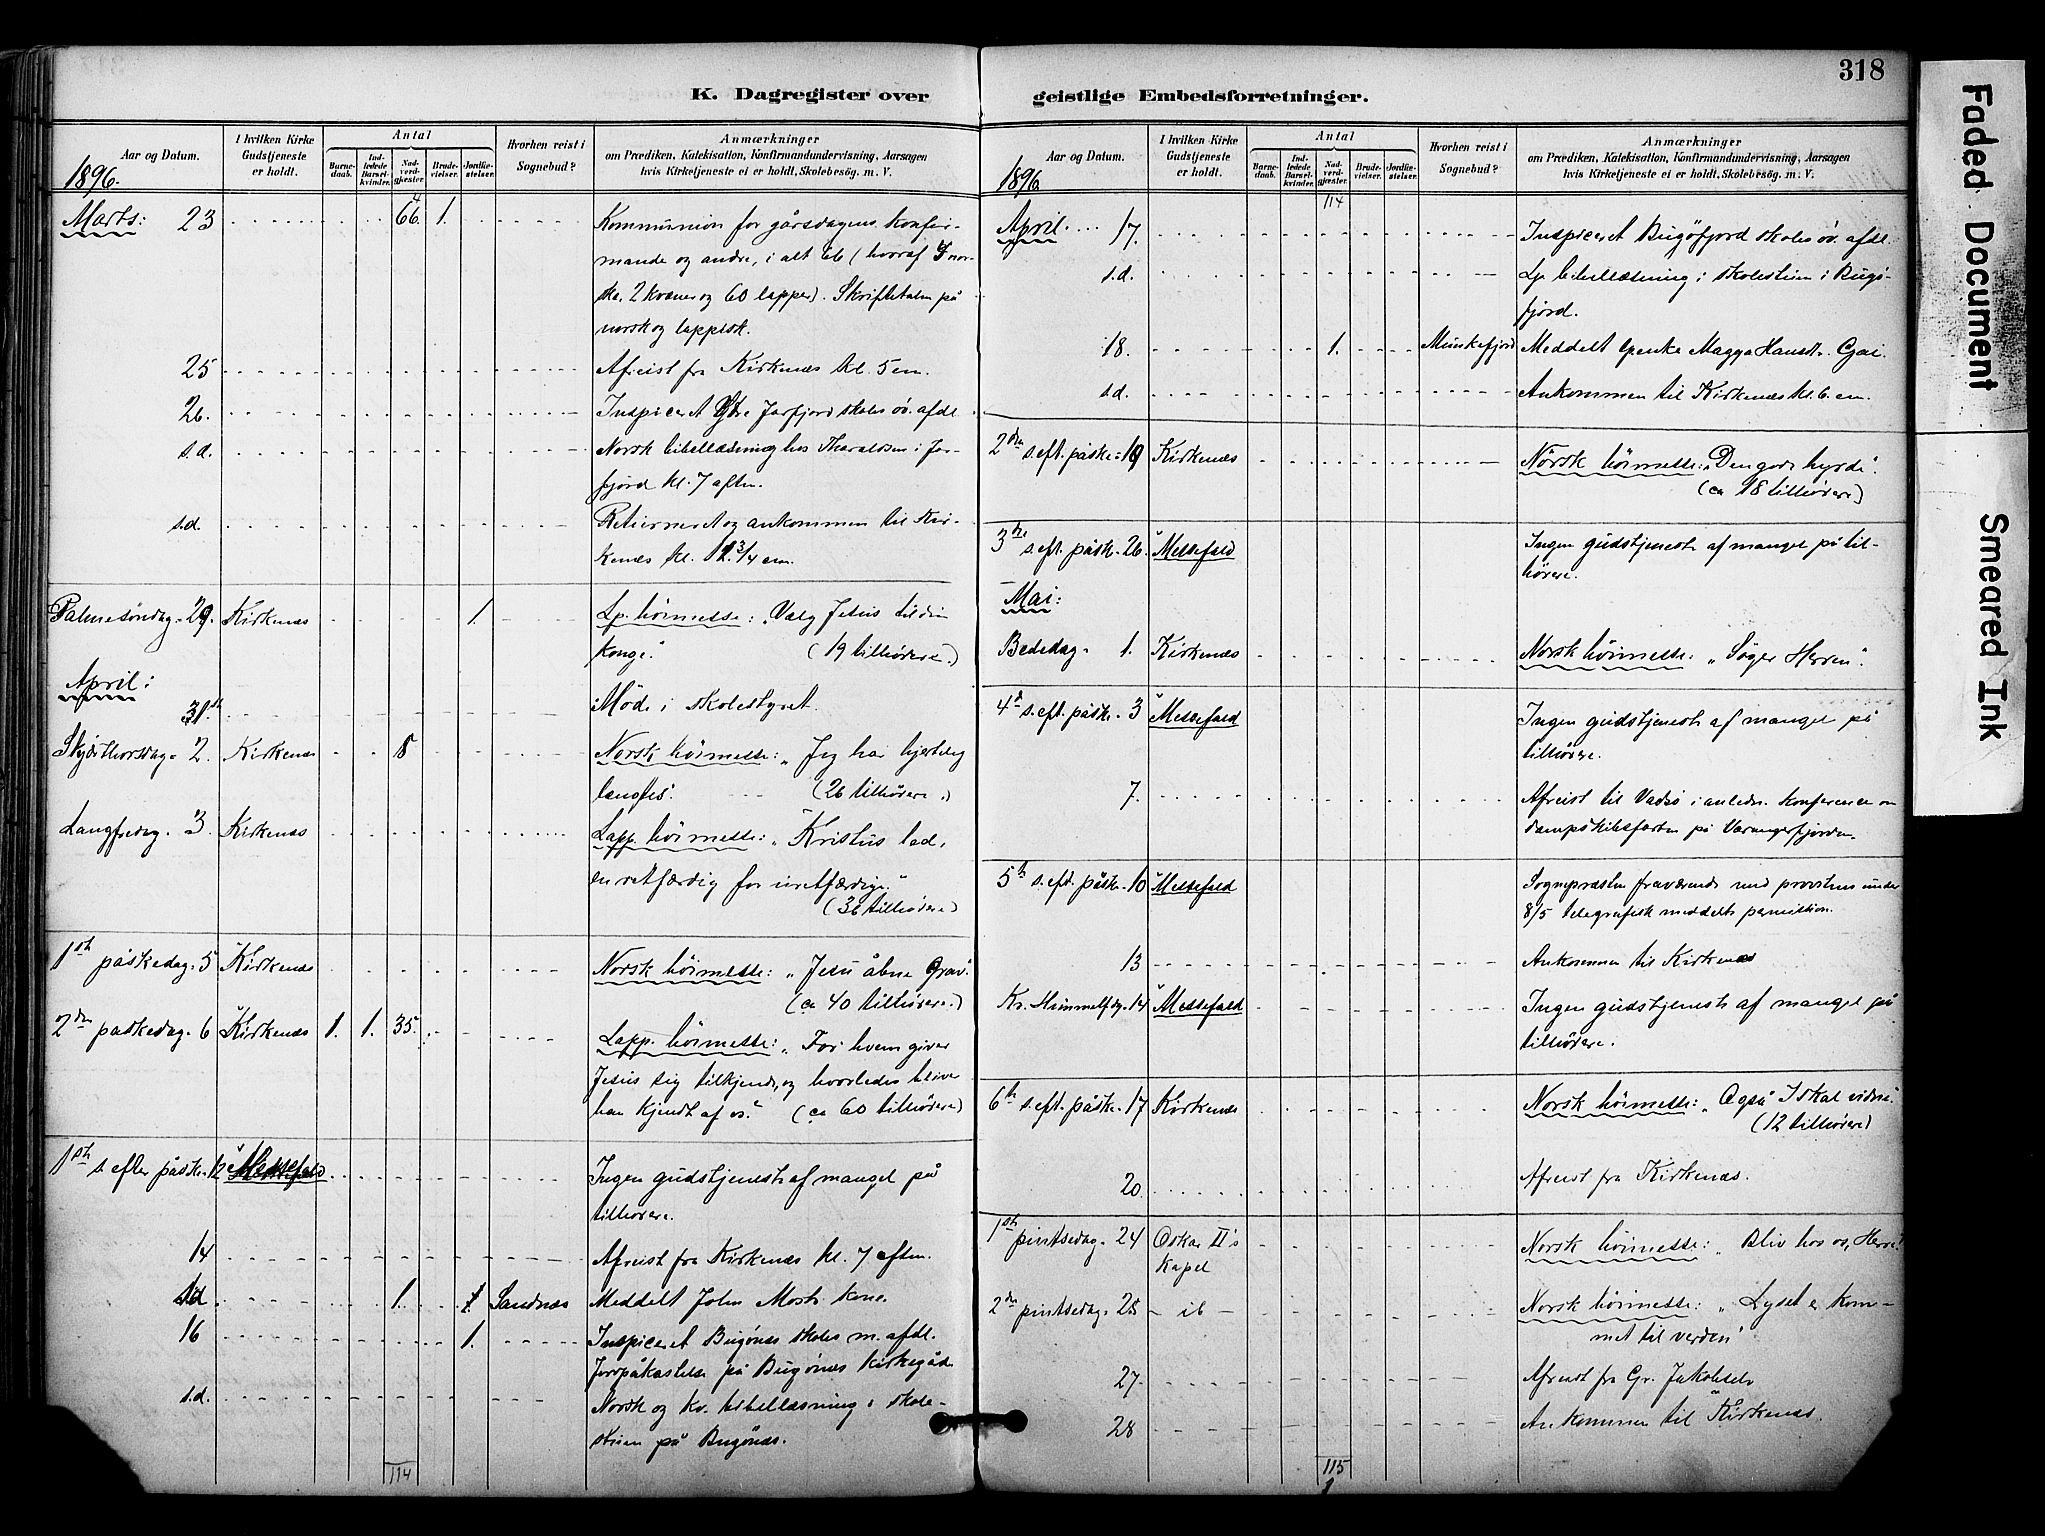 318
K. Dagregister over geistlige Embedsforretninger.
Aar og Datum.
I hvilken Kirke Gudstjeneste er holdt.
Antal
Barne-daab.
Ind-ledede Barsel-kvinder.
Nad-verd-gjester.
Brude-vielser.
Jordfæ-stelser.
Hvorhen reist i Sognebud?
Anmærkninger
om Prædiken, Katekisation, Konfirmandundervisning, Aarsagen
hvis Kirketjeneste ei er holdt, Skolebesøg. m. V.
1896.
Marts: 23 66 1. Kommunion for gårsdagens konfir-
mande og andre, i alt 66 (hvoraf 4 nor-
ske, 2 kvæner og 60 lapper). Skriftetalen på
norsk og lappisk.
25 Afreist fra Kirkenæs kl. 5 em.
26. Inspiceret Ytre Jarfjord skoles øv. afdl.
s.d. Norsk bibellæsning hos Tharaldsen i Jar-
fjord kl. 7 aften.
s.d. Returneret og ankommen til Kir-
kenæs kl. 12 3/4 em.
Palmesöndag. 29. Kirkenæs 1. Lp. höimesse: "Vælg Jesus til din
konge." (19 tilhörere.)
April:
31. Möde i skolestyret.
Skjærthorsdag. 2. Kirkenæs 8 Norsk höimesse: "Jeg har hjertelig
længtes". (26 tilhörere.)
Langfredag. 3. Kirkenæs Lapp. höimesse: "Kristus led,
en retfærdig for uretfærdige."
(36 tilhörere)
1ste påskedag. 5 Kirkenæs Norsk höimesse: "Jesu åbne grav".
(ca 40 tilhörere.)
2den påskedag. 6 Kirkenæs 1. 1. 35. Lapp. höimesse: "For hvem giver
Jesus sig tilkjende, og hvorledes bliver
han kjendt af os." (ca 60 tilhörere)
1ste s. efter påske. 12 Messefald Ingen gudstjeneste af mangel på
tilhörere.
14 Afreist fra Kirkenæs kl. 7 aften.
s.d. 1. Sandnæs Meddelt John kone.
16 1. Inspiceret Bugönæs skoles m. afdl.
Jordpåkastelse på Bugönæs kirkegård
s.d. Norsk og kv. bibellæsning i skole-
stuen på Bugönæs.
114
Aar og Datum.
I hvilken Kirke Gudstjeneste er holdt.
Antal
Barne-daab.
Ind-ledede Barsel-kvinder.
Nad-verd-gjester.
Brude-vielser.
Jordfæ-stelser.
Hvorhen reist i Sognebud?
Anmærkninger
om Prædiken, Katekisation, Konfirmandundervisning, Aarsagen
hvis Kirketjeneste ei er holdt, Skolebesøg. m. V.
1896
114
April 17. Inspiceret Bugöfjord skoles öv. afdl.
s.d. Lp. bibellæsning i skolestuen i Bugö-
fjord.
18. 1. Munkefjord Meddelt enke Magga Hansdr.
s.d. Ankommen til Kirkenæs kl. 6. em.
2den s. eft. påske. 19 Kirkenæs Norsk höimesse: "Den gode hyrde".
(ca 18 tilhörere)
3die s. eft. påske. 26. Messefald Ingen gudstjeneste af mangel på til-
hörere.
Mai:
Bededag. 1. Kirkenæs Norsk höimesse: "Söger Herren".
4de s. eft. påske. 3 Messefald Ingen gudstjeneste af mangel på
tilhörere.
7. Afreist til Vadsö i anledn. konference om
dampskibsfarten på Varangerfjorden.
5te s. eft. påske. 10 Messefald Sognepræsten fraværende med provstens under
8/5 telegrafisk meddelte permission.
13 Ankommen til Kirkenæs
Kr. Himmelfdg. 14 Messefald Ingen gudstjeneste af mangel på
tilhörere.
6te s. eft. påske. 17 Kirkenæs Norsk höimesse: "Også I skal vidne".
(12 tilhörere)
20 Afreist fra Kirkenæs.
1ste pintsedag. 24 Oskar II's Norsk höimesse: "Bliv hos os, Herre!
Kapel
2den pintsedag. 25 - ib - Norsk höimesse: "Lyset er kom-
met til verden"
27. Afreist fra Gr. Jakobselv
28 Ankommen til Kirkenæs.
115
Faded Document
Smeared Ink